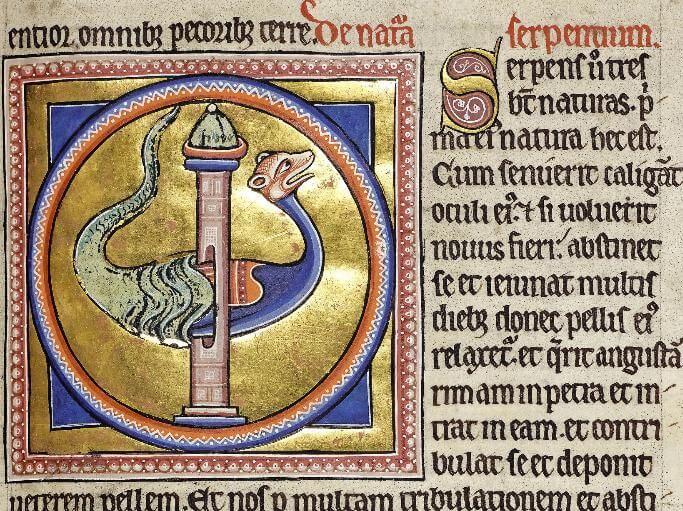 entior omnibꝫ pecoribꝫ terre. De nat̄a
serpentium.
Serpens ū tres
bt̄ naturas. p̄
ma ei natura hec est.
Cum senuerit caligāt
oculi eiꝰ ⁊ si uoluerit
nouus fieri: abstinet
se et ieiunat multis
diebꝫ donec pellis eiꝰ
relaxet᷑. et q̄rit angustā
rimam in petra et in
trat in eam. et contri
bulat se et deponit
ueterem pellem. Et nos p multam tribulationem et absti